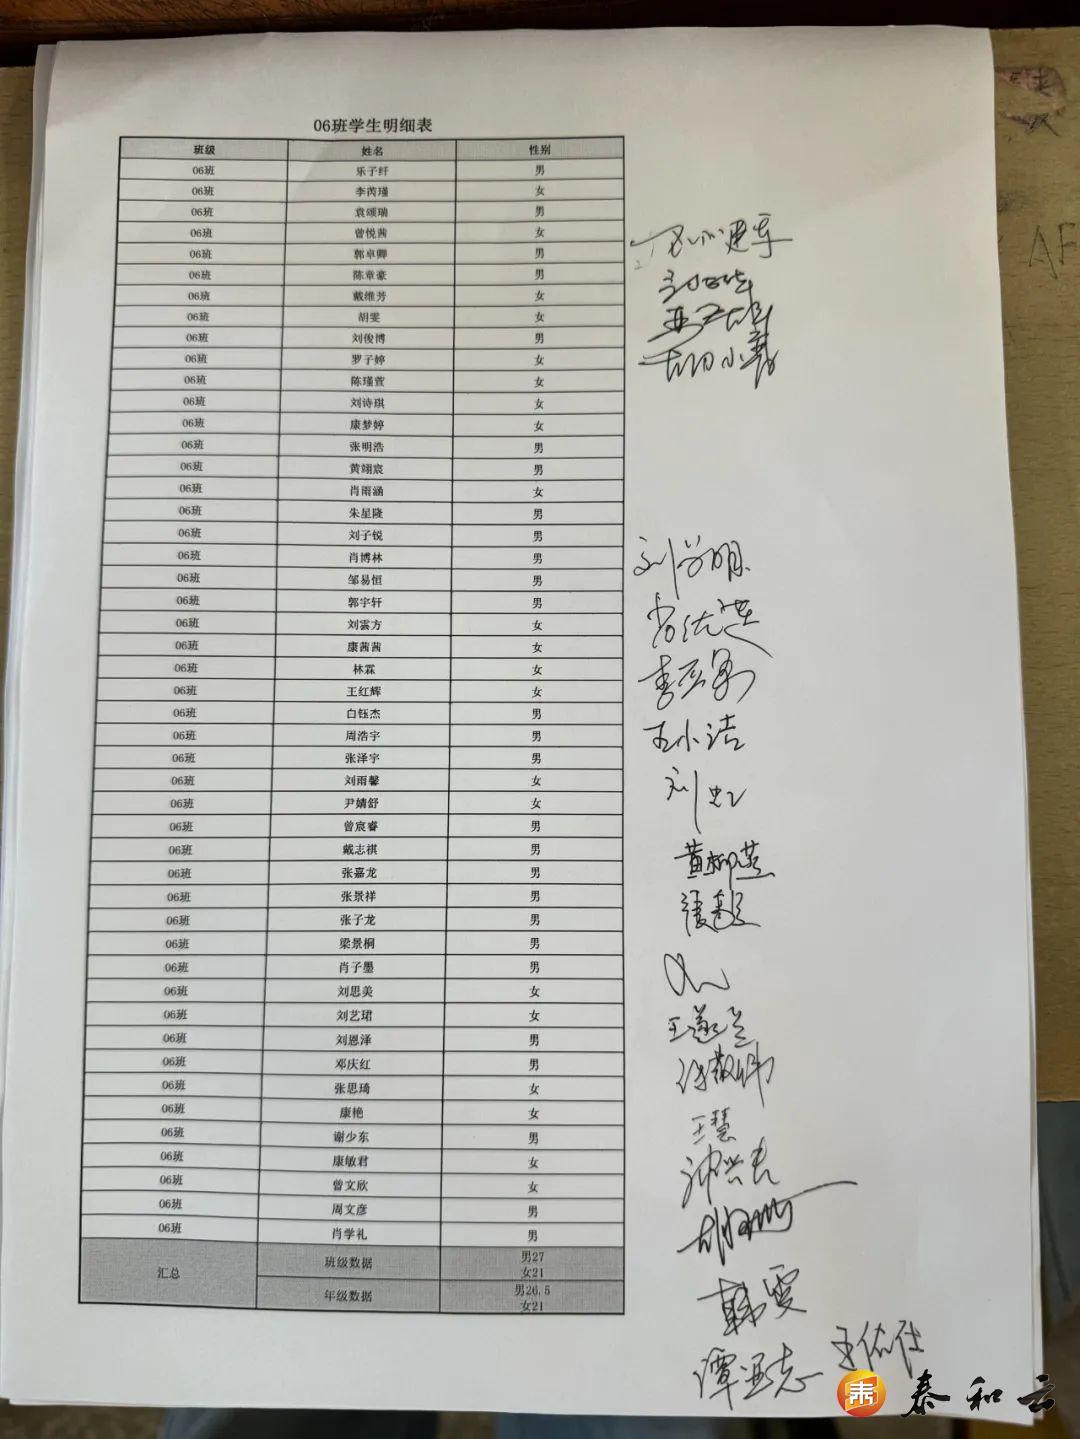 06班学生明细表
班级 姓名 性别
06班 乐子纤 男
06班 李芮瑾 女
06班 袁颂瑞 男
06班 曾悦茜 女
06班 郭卓卿 男
06班 陈章豪 男
06班 戴维芳 女
06班 胡雯 女
06班 刘俊博 男
06班 罗子婷 女
06班 陈瑾萱 女
06班 刘诗琪 女
06班 康梦婷 女
06班 张明浩 男
06班 黄翊宸 男
06班 肖雨涵 女
06班 朱星隆 男
06班 刘子锐 男
06班 肖博林 男
06班 邹易恒 男
06班 郭宇轩 男
06班 刘雲方 女
06班 康茜茜 女
06班 林霖 女
06班 王红辉 女
06班 白钰杰 男
06班 周浩宇 男
06班 张泽宇 男
06班 刘雨馨 女
06班 尹婧舒 女
06班 曾宸睿 男
06班 戴志祺 男
06班 张嘉龙 男
06班 张景祥 男
06班 张子龙 男
06班 梁景桐 男
06班 肖子墨 男
06班 刘思美 女
06班 刘艺珺 女
06班 刘恩泽 男
06班 邓庆红 男
06班 张思琦 女
06班 康艳 女
06班 谢少东 男
06班 康敏君 女
06班 曾文欣 女
06班 周文彦 男
06班 肖学礼 男
汇总 班级数据 男27
女21
年级数据 男26.5
女21
刘学明
王小洁
刘虹
黄柳燕
王慧
韩雯
谭亚志
王佑仕
AF
泰和云